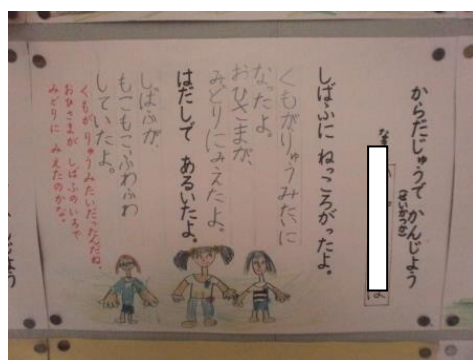 からだじゅうで かんじよう
(せいかつか)
なま
は
しばふに ねっころがったよ。
くもがりゅうみたいに
なったよ。
おひさまが、
みどりにみえたよ。
はだしで あるいたよ。
しばふが、
もこもこ、ふわふわ
していたよ。
くもがりゅうみたいだったんだね。
おひさまが しばふのいろで
みどりに みえたのかな。